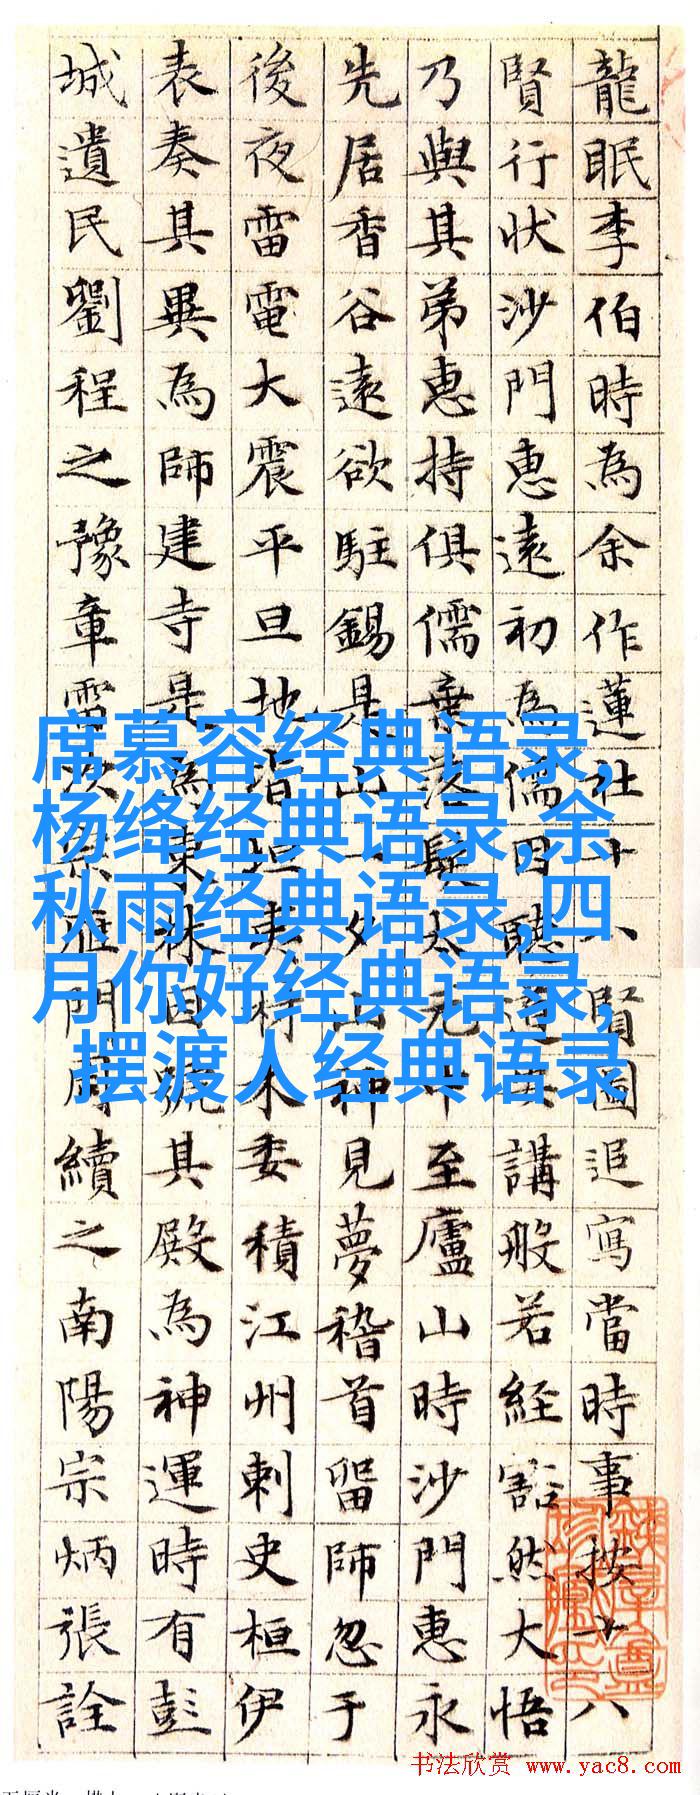 龍眠李伯時為余作蓮社十八賢圖追寫當時事按十八
賢行狀沙門惠遠初為儒因聽道安講般若經豁然大悟
乃與其弟惠持俱儒棄落髮太元中至廬山時沙門惠永
先居香谷遠欲駐錫是山一夕山神見夢稽首留師忽于
後夜雷電大震平旦地皆坦夷材木委積江州刺史桓伊
表奏其異為師建寺是為東林因號其殿為神運時有彭
城遺民劉程之豫章雷次宗雁門周續之南陽宗炳張詮
席慕容经典语录,
杨绛经典语录,余
秋雨经典语录,四
月你好经典语录,
摆渡人经典语录
书法欣赏 www.yac8.com